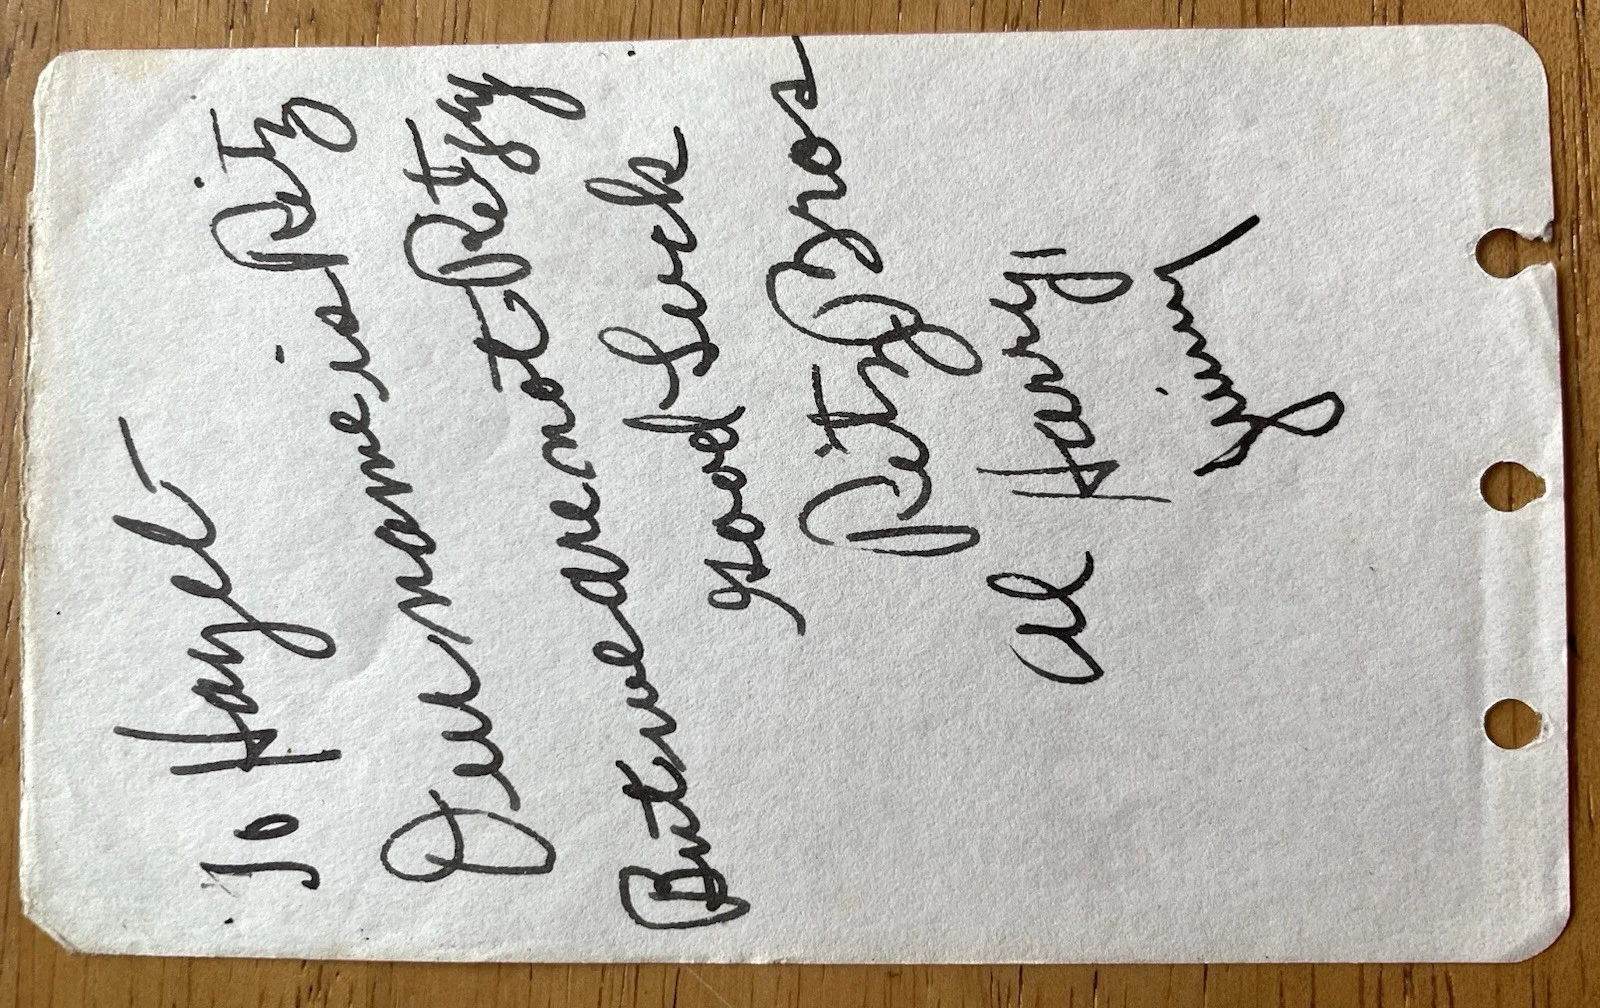 To Hazel —
Our name is Ritz
But we are not Ritzy
good Luck
Ritz Bros
Al Harry
Jimmy